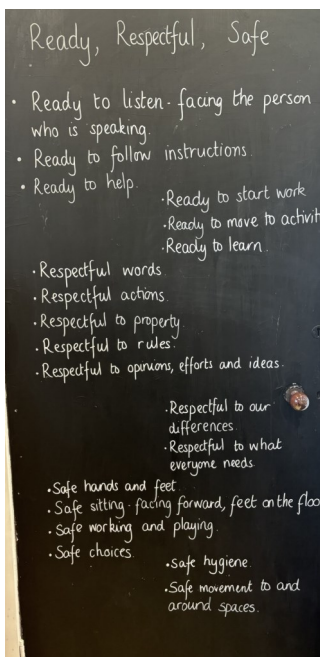 Ready, Respectful, Safe
• Ready to listen - facing the person
who is speaking.
• Ready to follow instructions.
• Ready to help.
• Ready to start work
• Ready to move to activit
• Ready to learn.
• Respectful words.
• Respectful actions.
• Respectful to property.
• Respectful to rules.
• Respectful to opinions, efforts and ideas.
• Respectful to our
differences.
• Respectful to what
everyone needs.
• Safe hands and feet.
• Safe sitting - facing forward, feet on the floo
• Safe working and playing.
• Safe choices.
• Safe hygiene.
• Safe movement to and
around spaces.